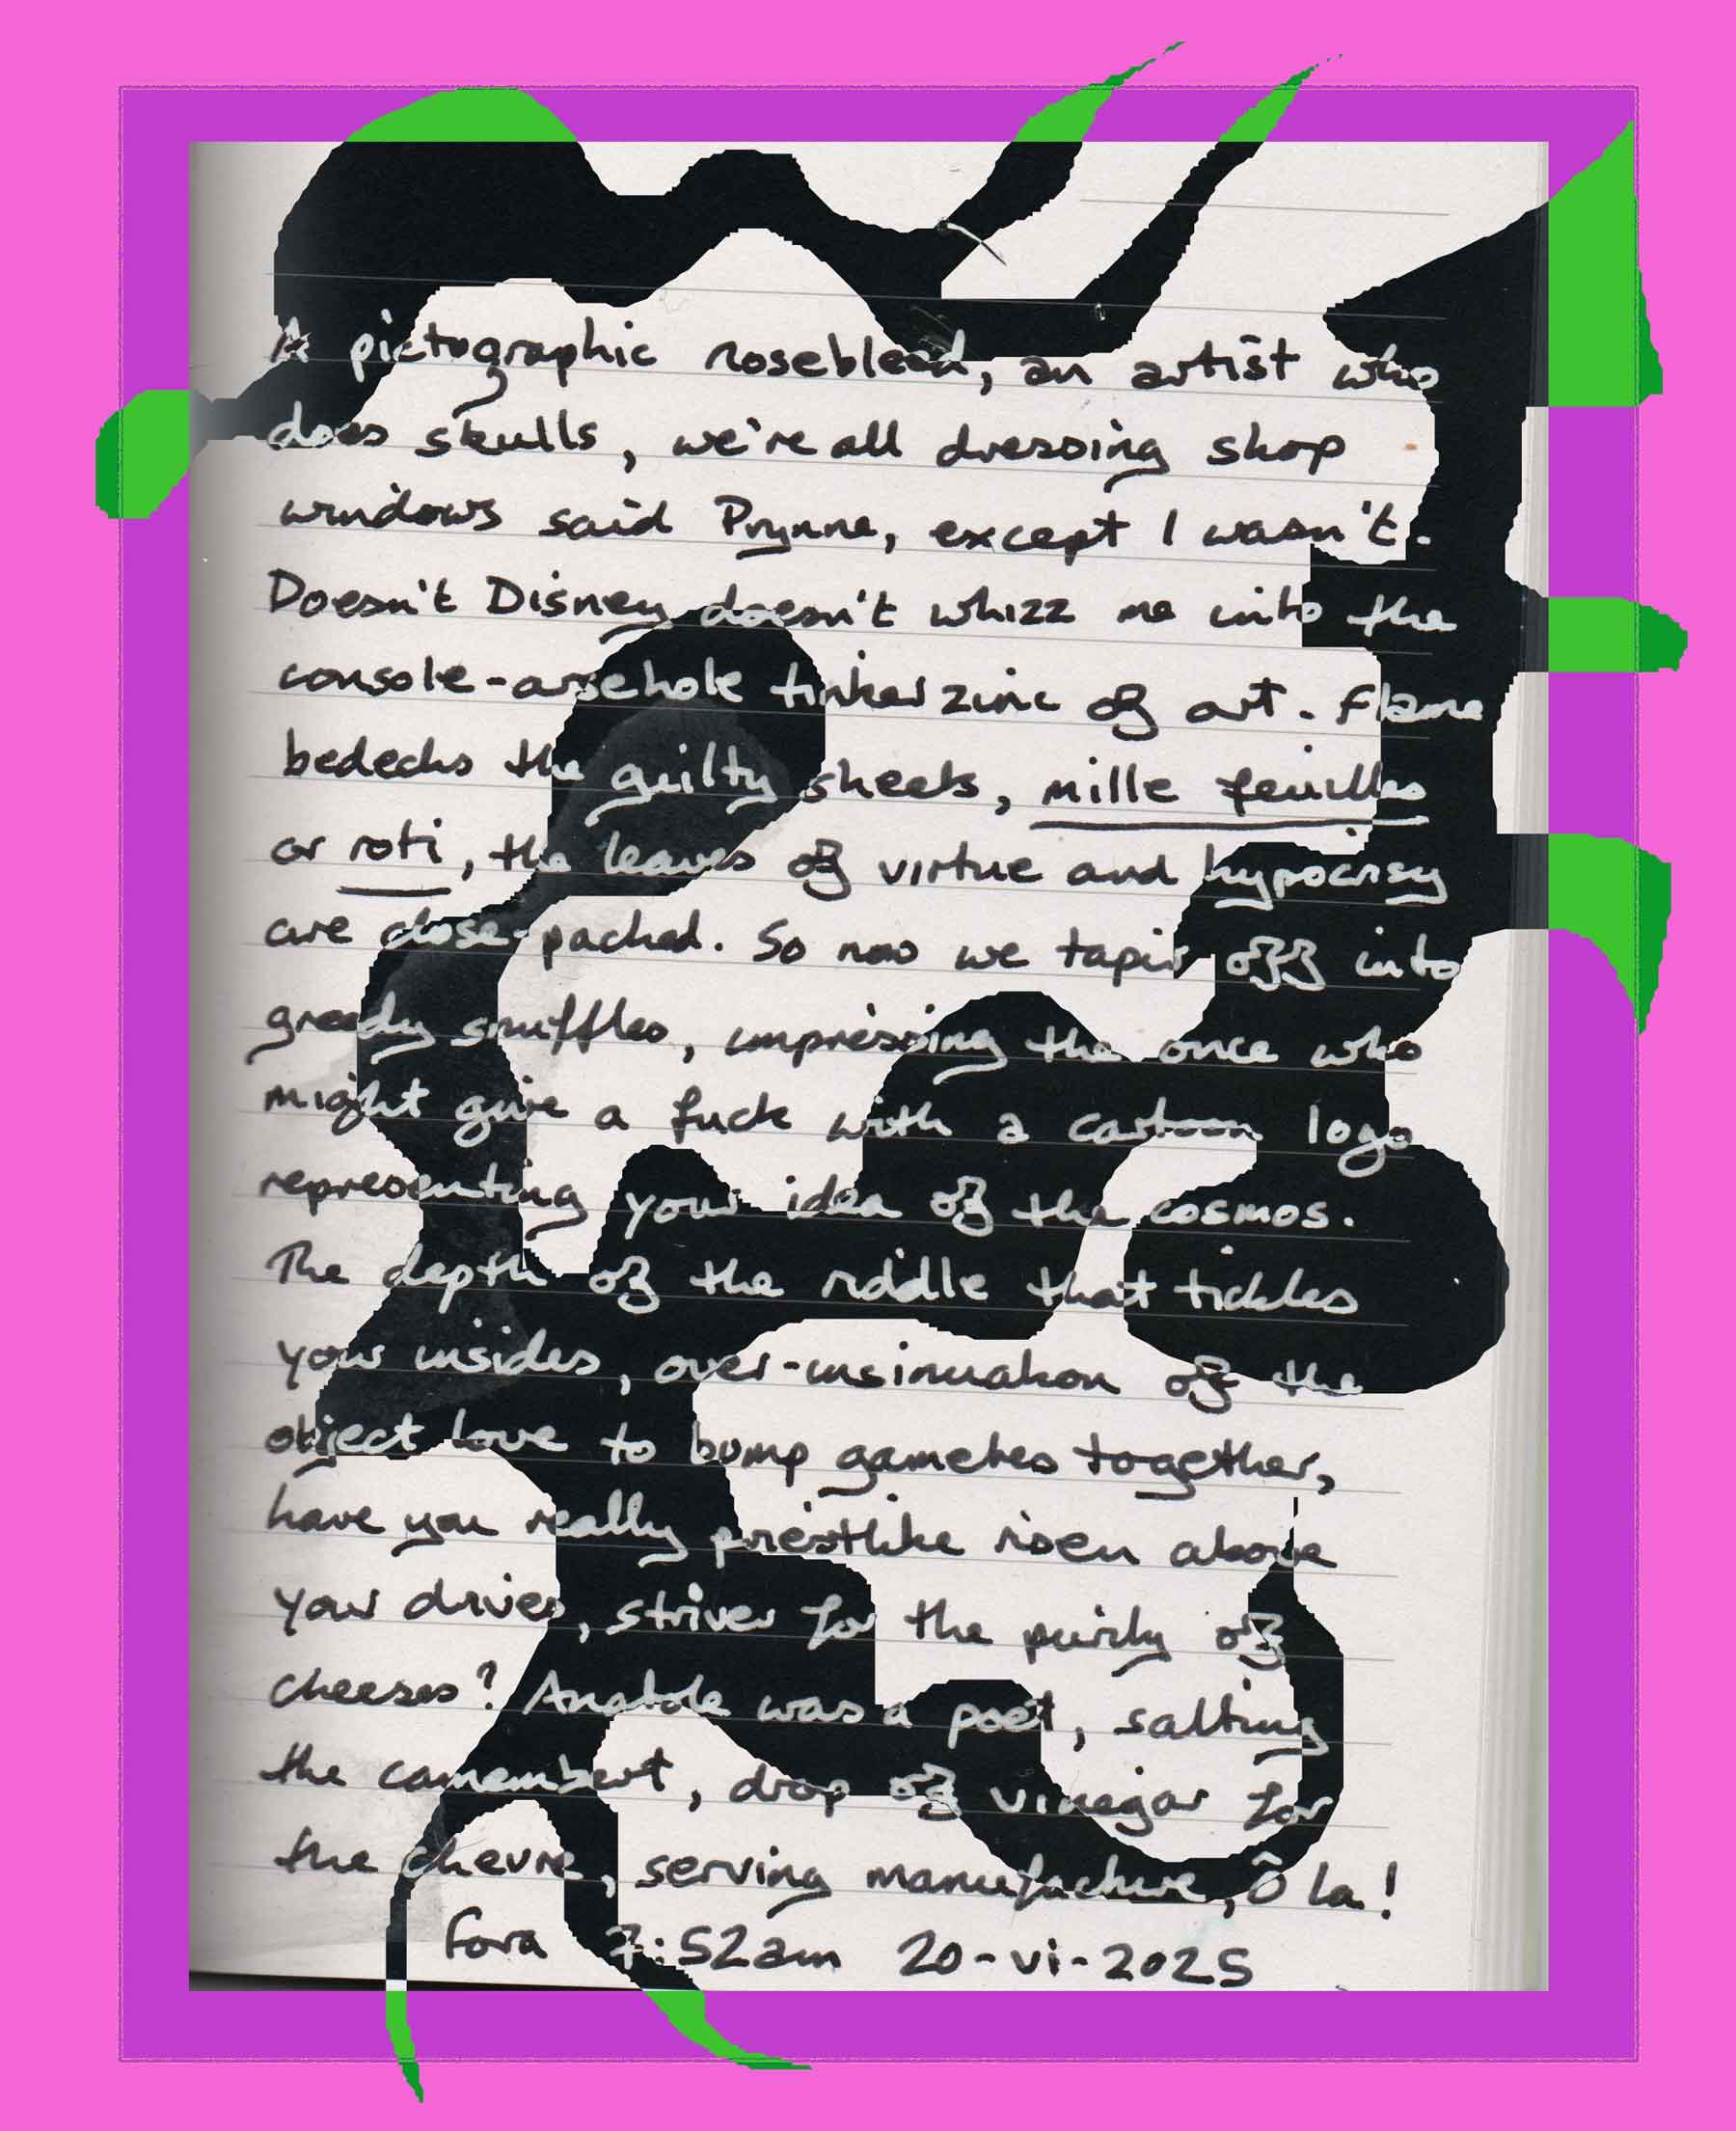 A pictographic nosebleed, an artist who
does skulls, we're all dressing shop
windows said Prynne, except I wasn't.
Doesn't Disney doesn't whizz me into the
console-arsehole tinker zinc of art. Flame
bedecks the guilty sheets, mille feuilles
or roti, the leaves of virtue and hypocrisy
are close-packed. So now we tapir off into
greedy snuffles, impressing the once who
might give a fuck with a cartoon logo
representing your idea of the cosmos.
The depth of the riddle that tickles
your insides, over-insinuation of the
object love to bump gametes together,
have you really priestlike risen above
your drives, striver for the purity of
cheeses? Anatole was a poet, salting
the camembert, drop of vinegar for
the chevre, serving manufacture, ô la!
Fora 7:52am 20-vi-2025